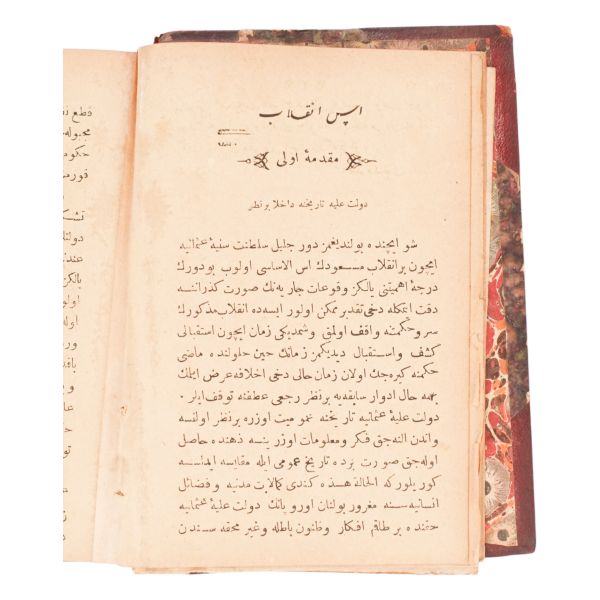 اس انقلاب
مقدمهٔ اولی
دولت علیه تاریخنه داخلا بر نظر
شو ایچنده بولندیغمز دور جلیل سلطنت سنیهٔ عثمانیه
ایچون بر انقلاب مسعودك اس الاساسی اولوب بودورك
درجهٔ اهمیتنی یالکز وقوعات جاریه‌نك صورت کذراننه
دقت ایتمکله دخی تقدیر ممکن اولور ایسه‌ده انقلاب مذکورك
سر و حکمتنه واقف اولمق و شمدیکی زمان ایچون استقبالی
کشف و استقبال دیدیکمز زمانك حین حلولنده ماضی
حکمنه کیره‌جك اولان زمان حالی دخی اخلافه عرض ایلمك
بهمه حال ادوار سابقه‌یه بر نظر رجعی عطفنه توقف ایلر .
دولت علیهٔ عثمانیه تاریخنه عمومیت اوزره بر نظر اولنسه
و اندن النه‌جق فکر و معلومات اوزرینسه ذهنده حاصل
اوله‌جق صورت برده تاریخ عمومی ایله مقایسه ایدلسه
کوریلور که الحالة هذه کندی کمالات مدنیه و فضائل
انسانیه‌سنه مغرور بولنان اوروپانك دولت علیهٔ عثمانیه
حقنده بر طاقم افکار و ظنون باطله و غیر محقه‌سندن
قطع
مجبوله
حکوم
تشك
دولتك
یالکز
اولو